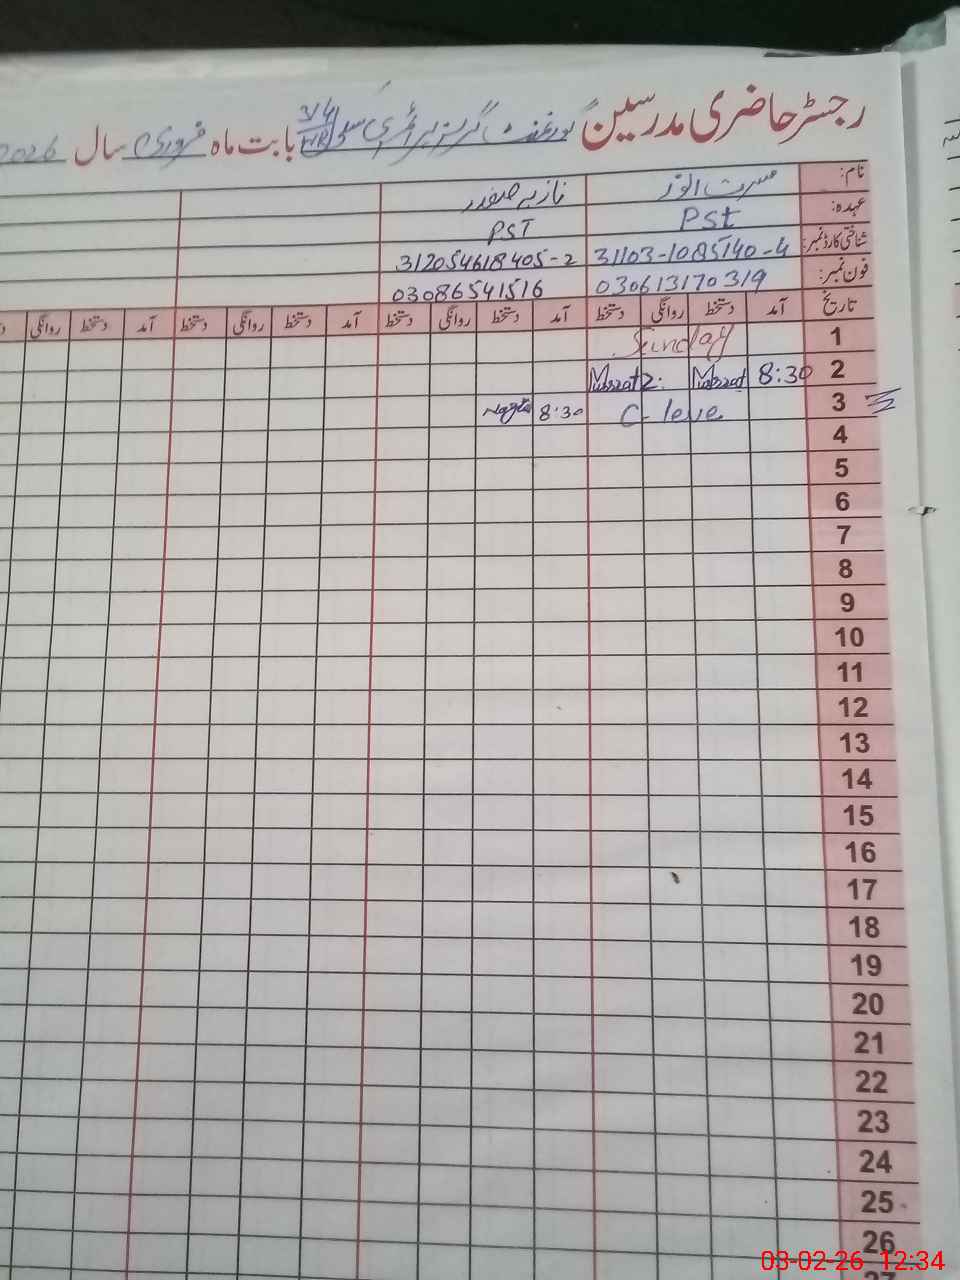 رجسٹر حاضری مدرسین گورنمنٹ گرلز پرائمری سکول 3/4 بابت ماہ فروری سال 2026
نام: مسرت انور نازیہ صفدر
عہدہ: Pst PST
شناختی کارڈ نمبر: 31103-1085140-4 312054618405-2
فون نمبر: 030613170319 03086541516
تاریخ آمد دستخط روانگی دستخط آمد دستخط روانگی دستخط آمد دستخط روانگی دستخط آمد دستخط روانگی
1 Sunday
2 8:30 Mussrat 2: Mussrat
3 C-leve 8:30
4
5
6
7
8
9
10
11
12
13
14
15
16
17
18
19
20
21
22
23
24
25
26
27
03-02-26 12:34